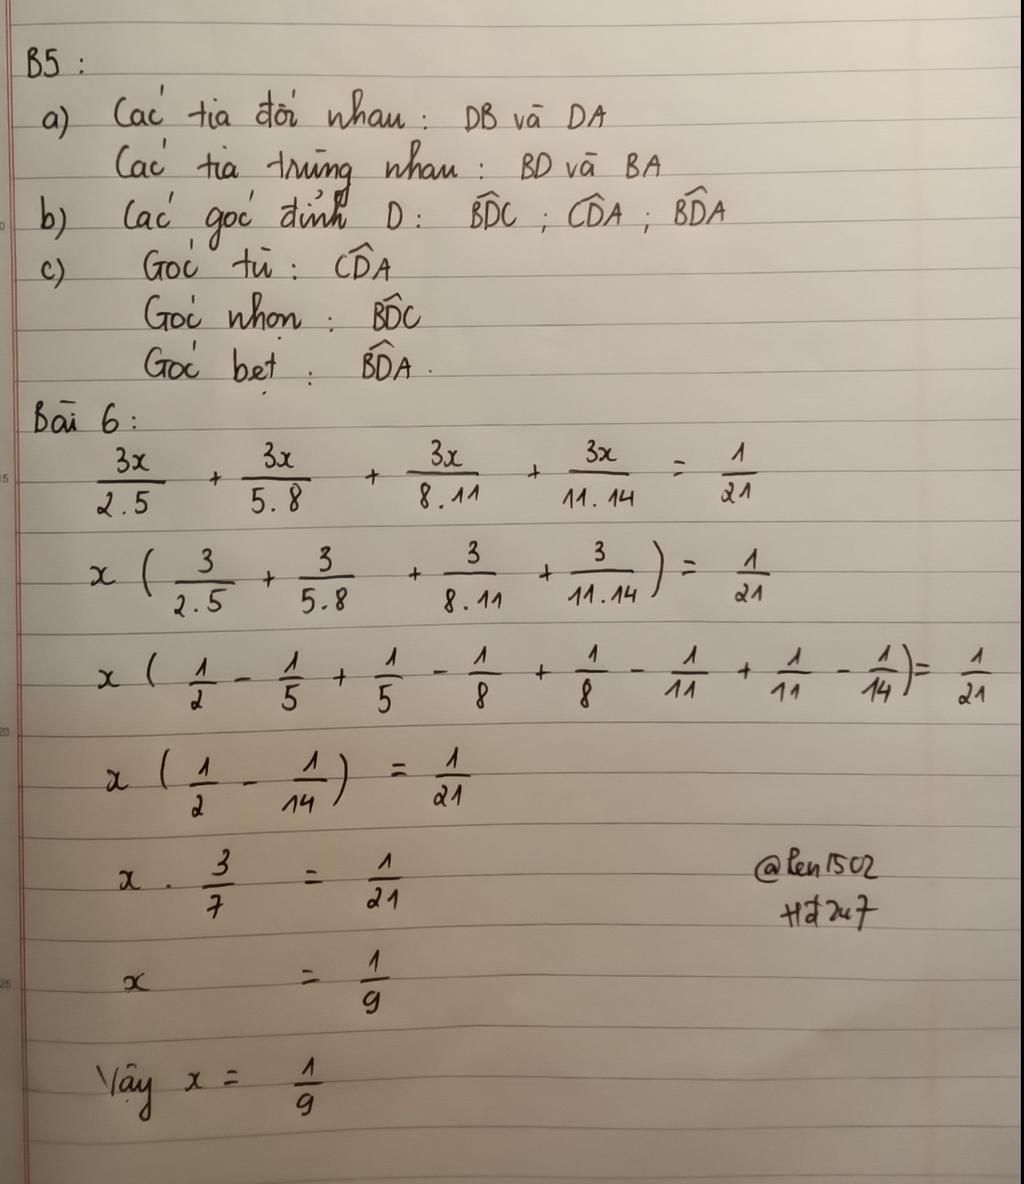 B5 :
a) Các tia đối nhau : DB và DA
Các tia trùng nhau : BD và BA
b) Các góc đỉnh D : \widehat{BDC} ; \widehat{CDA} ; \widehat{BDA}
c) Góc tù : \widehat{CDA}
Góc nhọn : \widehat{BDC}
Góc bẹt : \widehat{BDA} .
Bài 6 :
\frac{3x}{2.5} + \frac{3x}{5.8} + \frac{3x}{8.11} + \frac{3x}{11.14} = \frac{1}{21}
x ( \frac{3}{2.5} + \frac{3}{5.8} + \frac{3}{8.11} + \frac{3}{11.14} ) = \frac{1}{21}
x ( \frac{1}{2} - \frac{1}{5} + \frac{1}{5} - \frac{1}{8} + \frac{1}{8} - \frac{1}{11} + \frac{1}{11} - \frac{1}{14} ) = \frac{1}{21}
x ( \frac{1}{2} - \frac{1}{14} ) = \frac{1}{21}
x . \frac{3}{7} = \frac{1}{21}
@len1502
x = \frac{1}{9}
Vậy x = \frac{1}{9}